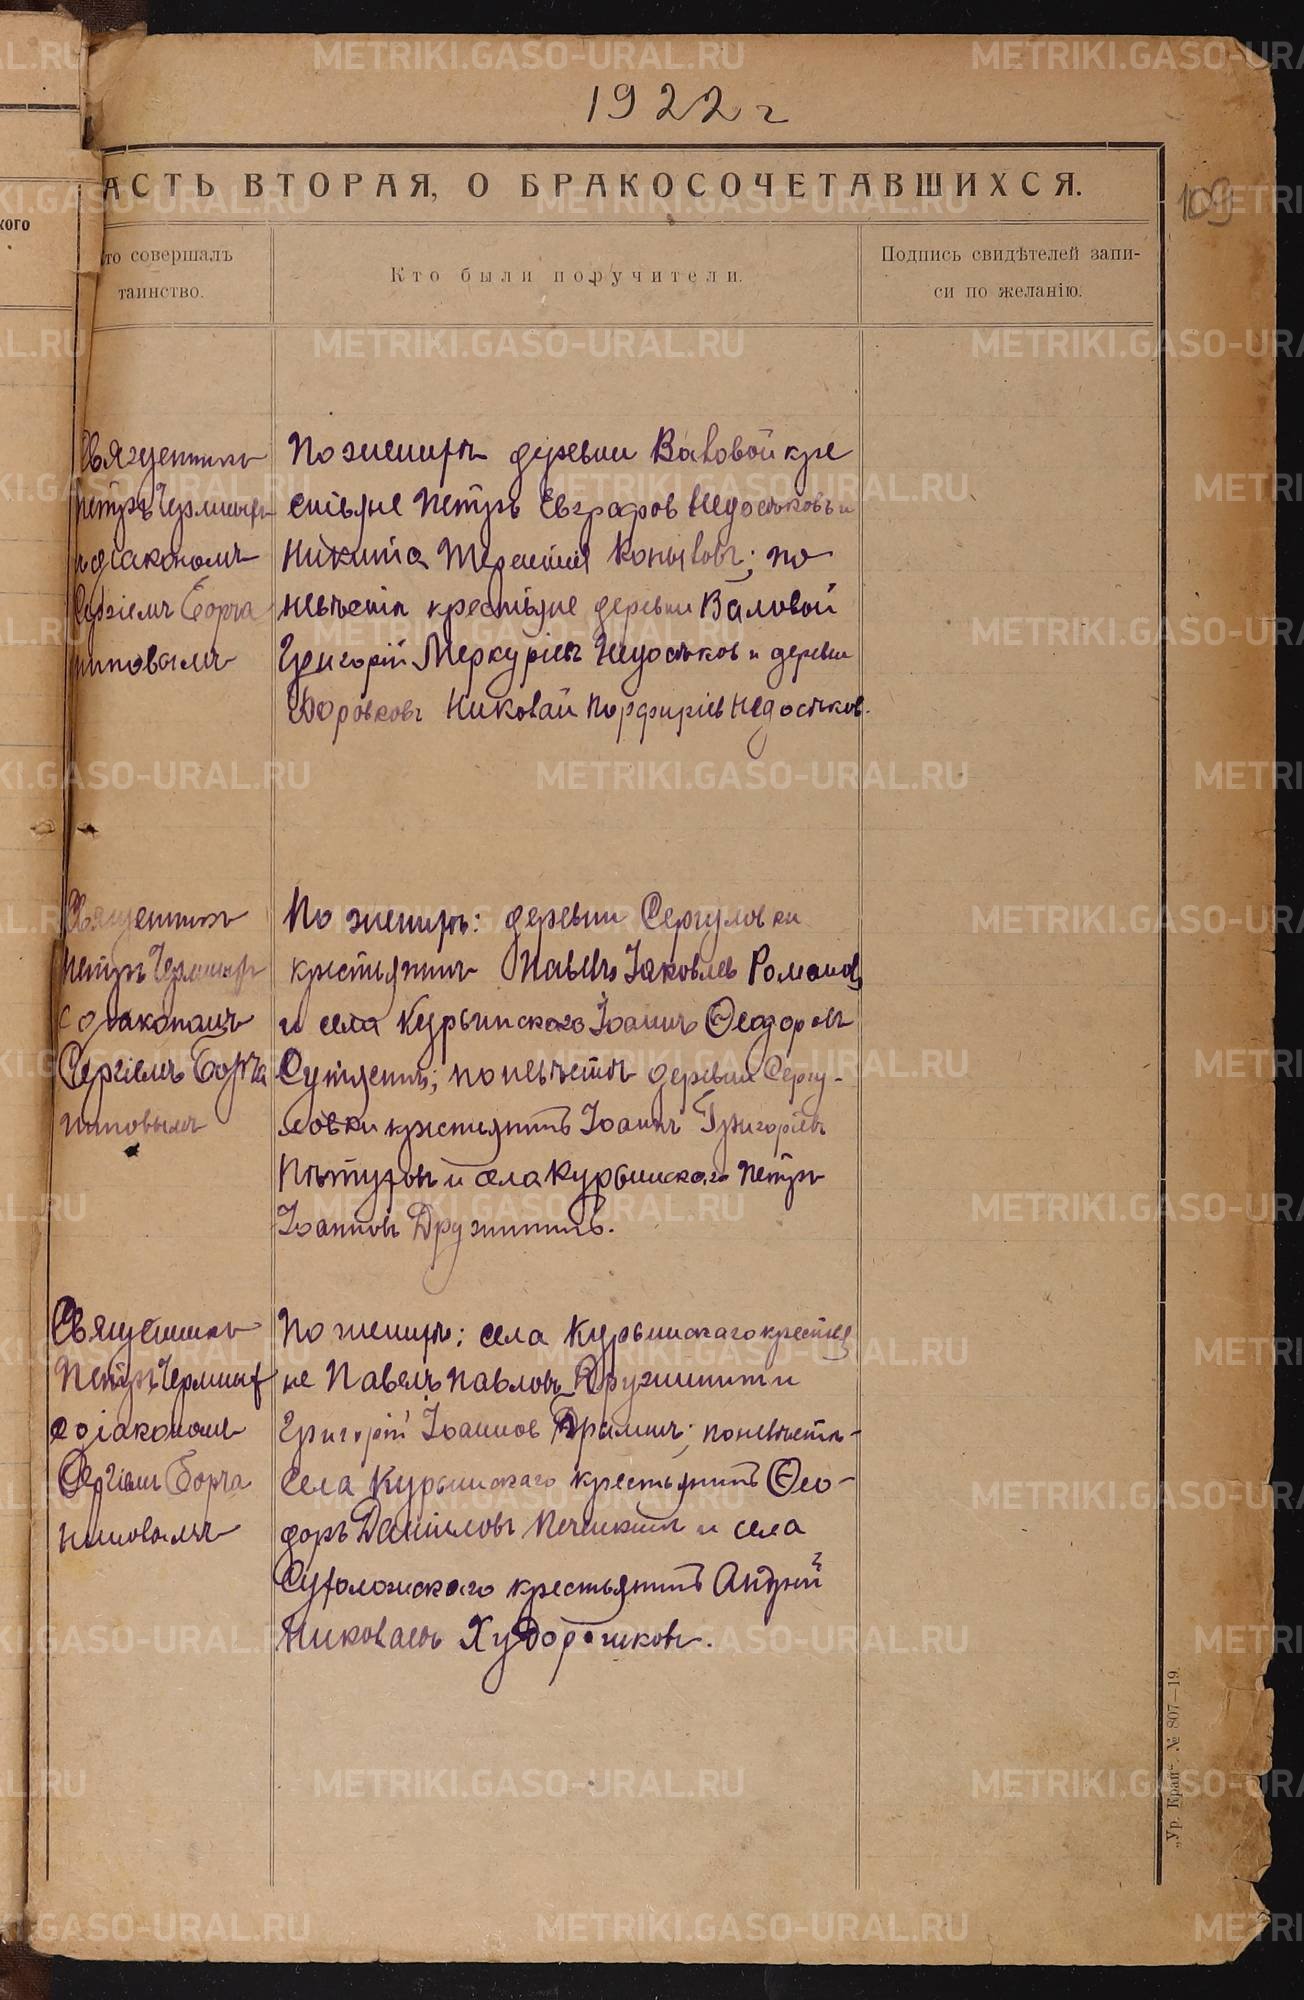 1922 г
АСТЬ ВТОРАЯ, О БРАКОСОЧЕТАВШИХСЯ.
109
кого
то совершалъ
таинство.
Кто были поручители.
Подпись свидѣтелей запи-
си по желанію.
Священникъ
Петръ
и діакономъ
Сергіемъ Борча
ниновымъ
По женихѣ деревни Валовой кре
стьяне Петръ Евграфов Недосѣковъ и
Никита Терентіев Копыловъ; по
невѣстѣ крестьяне деревни Валовой
Григорій Меркуріевъ Недосѣков и деревни
Боровковъ Николай Порфиріев Недосѣков.
Священникъ
Петръ
с діакономъ
Сергіемъ Борча
ниновымъ
По женихѣ: деревни Сергуловки
крестьянинъ Павелъ Іаковлев Романов
и села Курьинского Іоаннъ Ѳеодоровъ
по невѣстѣ деревни Сергу-
ловки крестьянинъ Іоаннъ Григоріевъ
Пѣтуховъ и села Курьинского Петръ
Іоанновъ Дружининъ.
Священникъ
Петръ
с діакономъ
Сергіемъ Борча
ниновымъ
По женихѣ; села Курьинскаго крестья
не Павелъ Павловъ Дружинин и
Григорій Іоаннов по невѣстѣ-
села Курьинскаго крестьянинъ Ѳео-
доръ Даниловъ и села
Сухоложского крестьянинъ Андрей
Николаевъ Худорошковъ.
„Ур. Край“ № 807—19.
METRIKI.GASO-URAL.RU